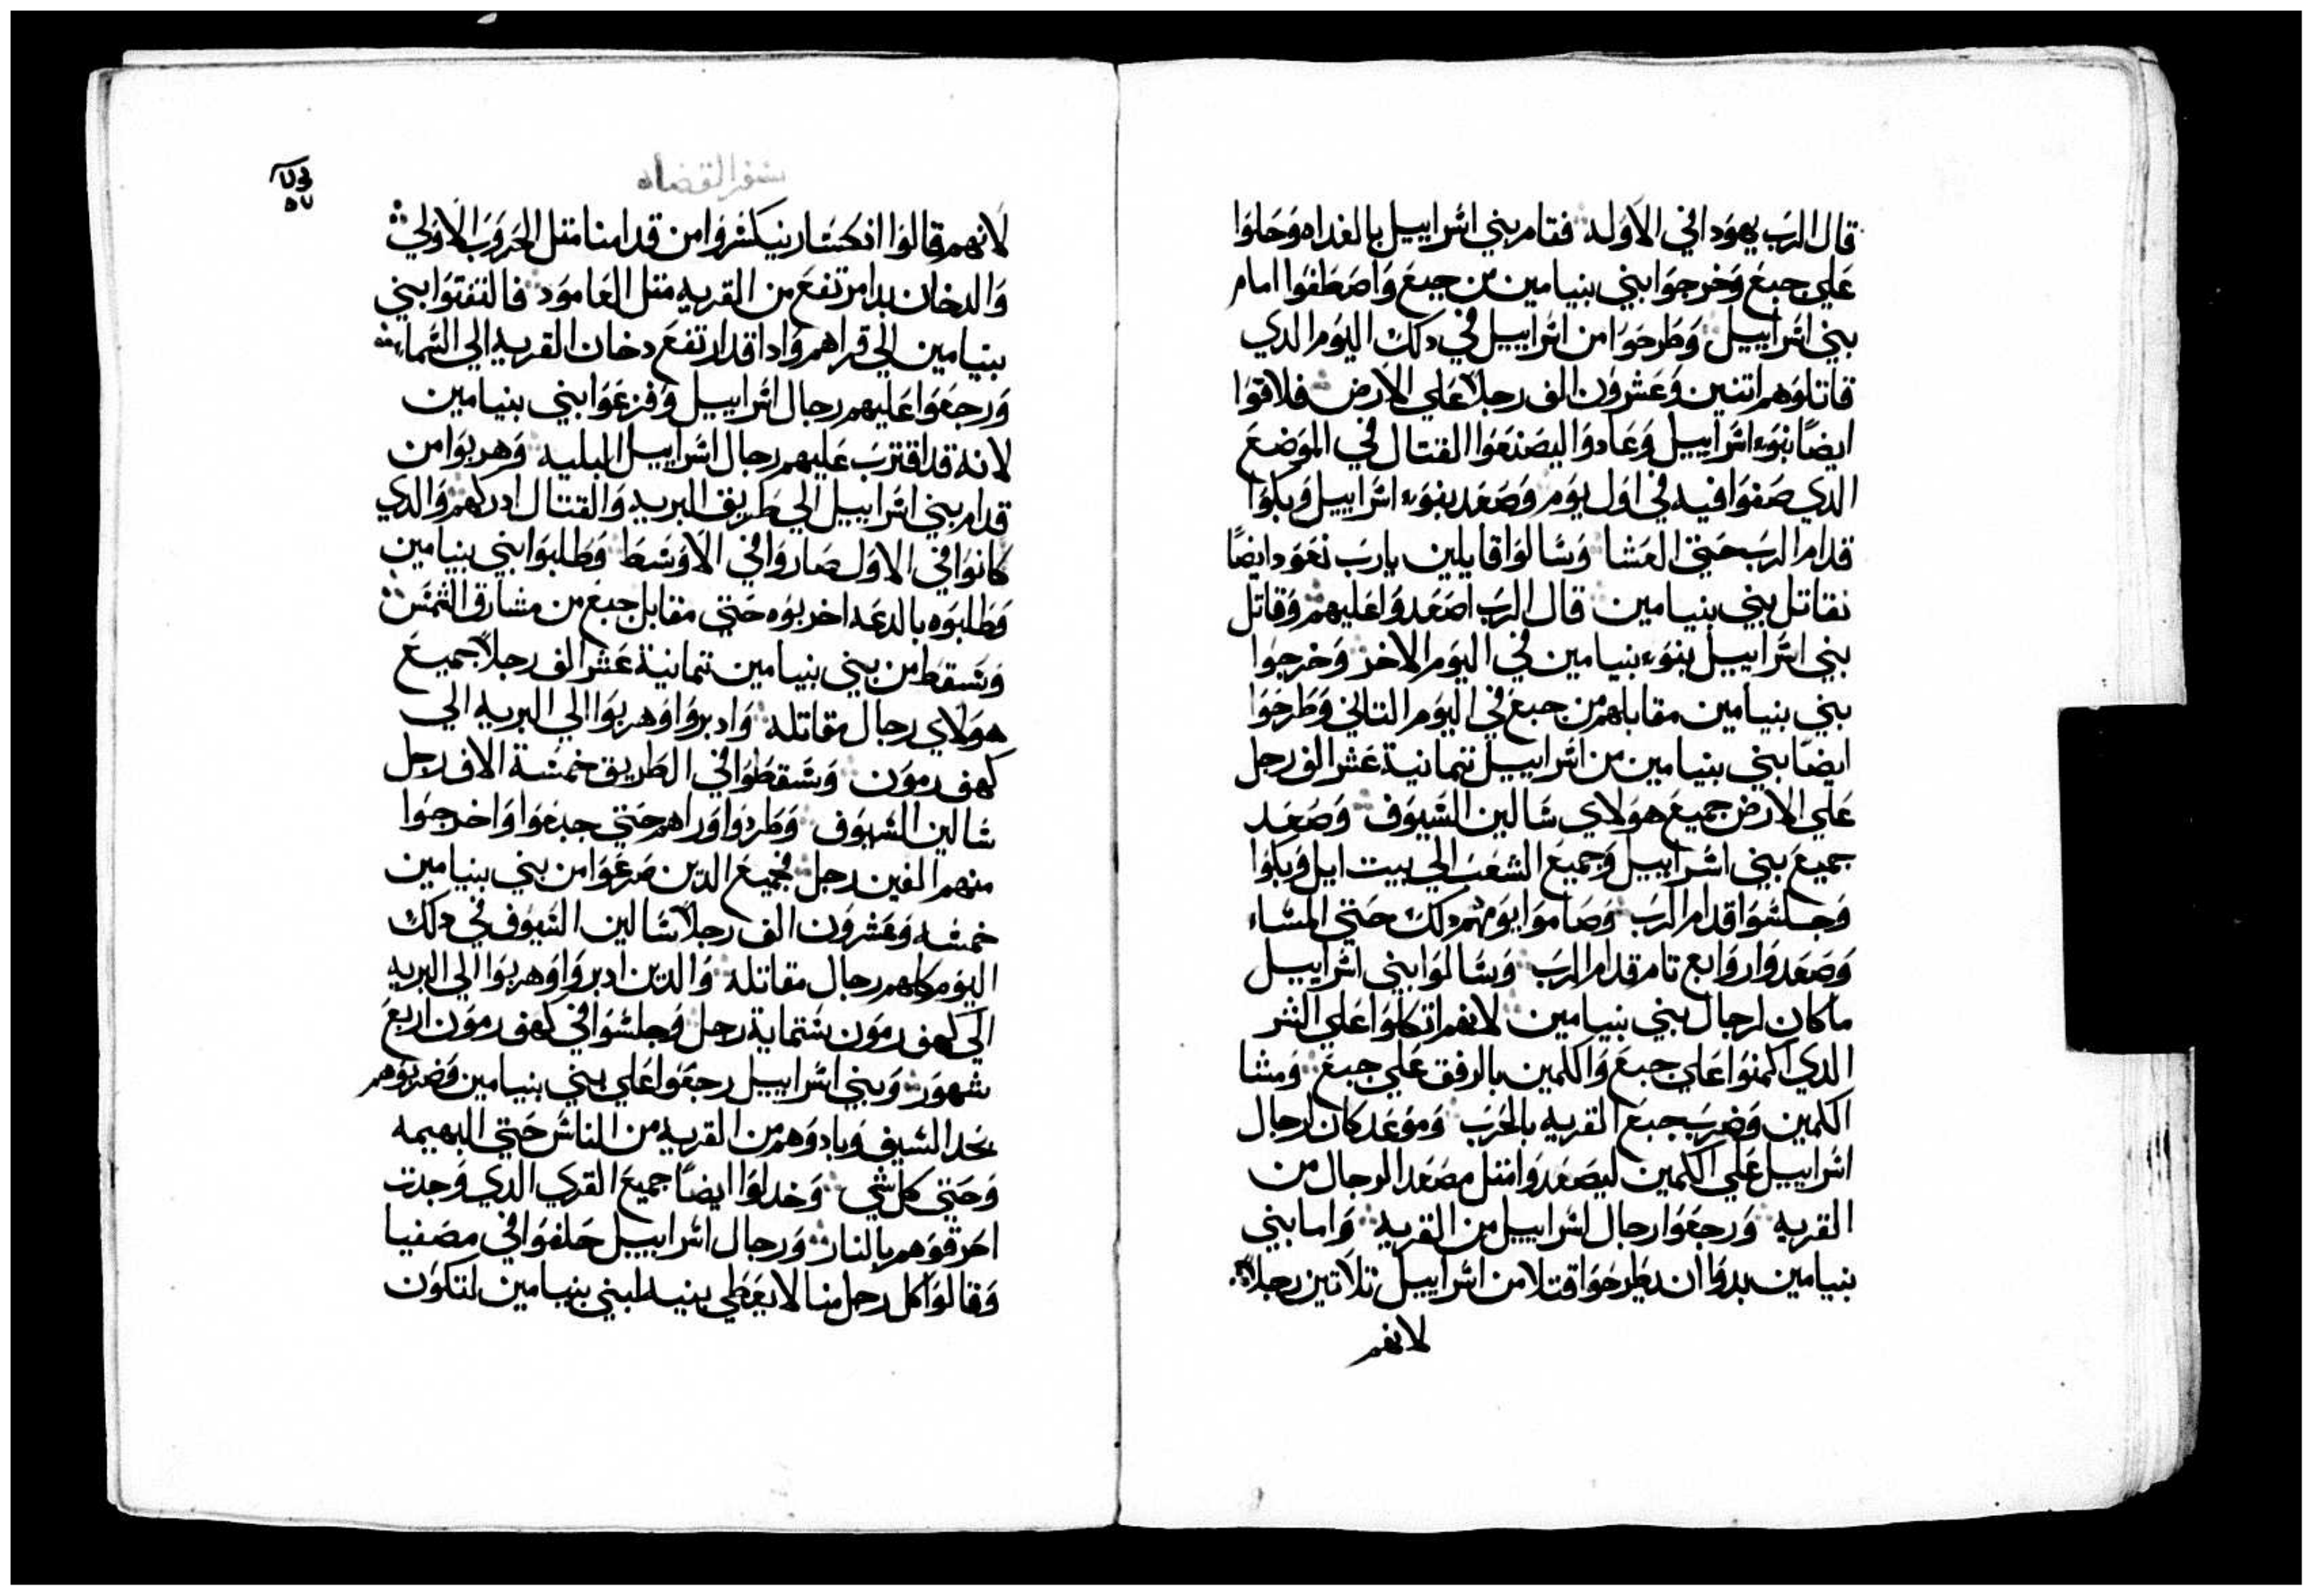 قال الرب يهودا في الاوله فقام بني اسراييل بالغداه وحلوا
علي جبع وخرجوا بني بنيامين من جبع واصطفوا امام
بني اسراييل وطرحوا من اسراييل في دلك اليوم الدي
قاتلوهم اتنين وعشرون الف رجلا علي الارض فلاقوا
ايضا بنوء اسراييل وعادوا ليصنعوا القتال في الموضع
الدي صفوا فيه في اول يوم وصعد بنوء اسراييل وبكوا
قدام الرب حتي العشا وسالوا قايلين يارب نعود ايضا
نقاتل بني بنيامين قال الرب اصعدوا عليهم وقاتل
بني اسراييل بنوء بنيامين في اليوم الاخر وخرجوا
بني بنيامين مقابلهم من جبع في اليوم التاني وطرحوا
ايضا بني بنيامين من اسراييل تمانية عشر الف رجل
علي الارض جميع هولاي سالين السيوف وصعد
جميع بني اسراييل وجميع الشعب الي بيت ايل وبكوا
وجلسوا قدام الرب وصاموا يومهم دلك حتي المساء
وصعدوا روابع تام قدام الرب وسالوا بني اسراييل
ما كان لرجال بني بنيامين لانهم اتكلوا علي
الدي اكمنوا علي جبع والكمين بالرفق علي جبع ومشا
الكمين وضرب جبع القريه بالحرب وموعد كان لرجال
اسراييل علي الكمين ليصعدوا متل مصعد الرجال من
القريه ورجعوا رجال اسراييل من القريه واما بني
بنيامين بدوا ان يطرحوا قتلا من اسراييل تلاتين رجلا
لانهم
سفر القضاه
لانهم قالوا انكسار ينكسروا من قدامنا متل الحروب الاولي
والدخان بدا مرتفع من القريه متل العامود فالتفتوا بني
بنيامين الي قراهم وادا قد ارتفع دخان القريه الي السماء
ورجعوا عليهم رجال اسراييل وفزعوا بني بنيامين
لانه قد اقترب عليهم رجال اسراييل البليه وهربوا من
قدام بني اسراييل الي طريق البريه والقتال ادركهم والدي
كانوا في الاول صاروا في الاوسط وطلبوا بني بنيامين
وطلبوه بالدعه اخربوه حتي مقابل جبع من مشارق الشمس
وسقط من بني بنيامين تمانية عشر الف رجلا جميع
هولاي رجال مقاتله وادبروا وهربوا الي البريه الي
كهف رمون وسقطوا في الطريق خمسة الاف رجل
سالين السيوف وطردوا وراهم حتي جبعوا واخرجوا
منهم الفين رجل فجميع الدين صرعوا من بني بنيامين
خمسه وعشرون الف رجلا سالين السيوف في دلك
اليوم كلهم رجال مقاتله والدين ادبروا وهربوا الي البريه
الي كهف رمون ستماية رجل وجلسوا في كهف رمون اربع
شهور وبني اسراييل رجعوا علي بني بنيامين وضربوهم
بحد السيف وبادوهم من القريه من الناس حتي البهيمه
وحتي كل شي وخدلوا ايضا جميع القري الدي وجدت
احرقوهم بالنار ورجال اسراييل حلفوا في مصفيا
وقالوا كل رجل منا لا يعطي بنيه لبني بنيامين لتكون